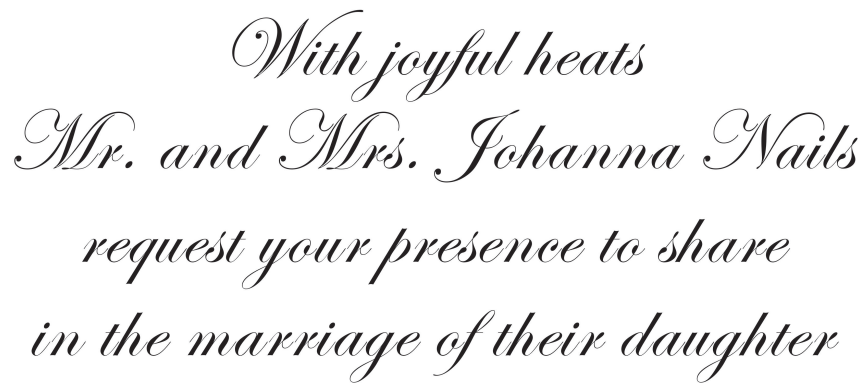 With joyful heats
Mr. and Mrs. Johanna Nails
request your presence to share
in the marriage of their daughter